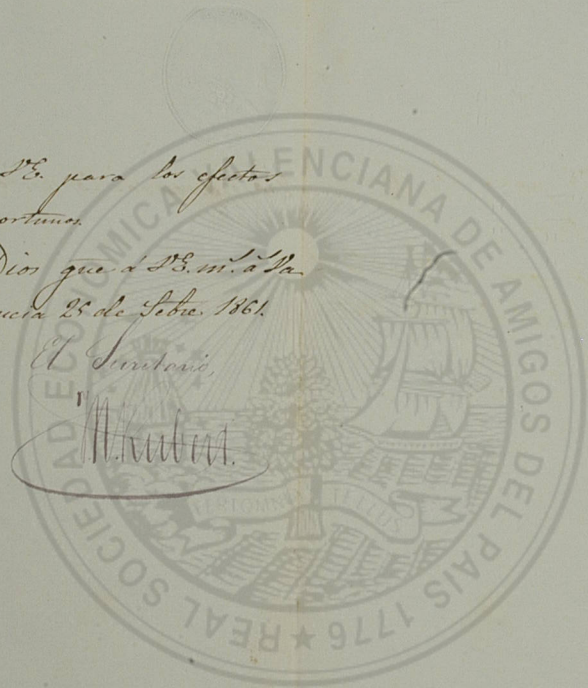 V.E. para los efectos
ortunos.
Dios gue. á V.E. ms. as. Va
encia 25 de Setre. 1861.
El Secretario,
REAL SOCIEDAD ECONOMICA VALENCIANA DE AMIGOS DEL PAIS 1776
FERT OMNIA TELLUS